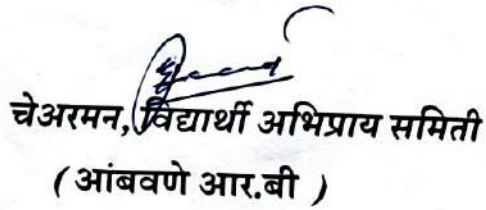 चेअरमन, विद्यार्थी अभिप्राय समिती
( आंबवणे आर.बी )